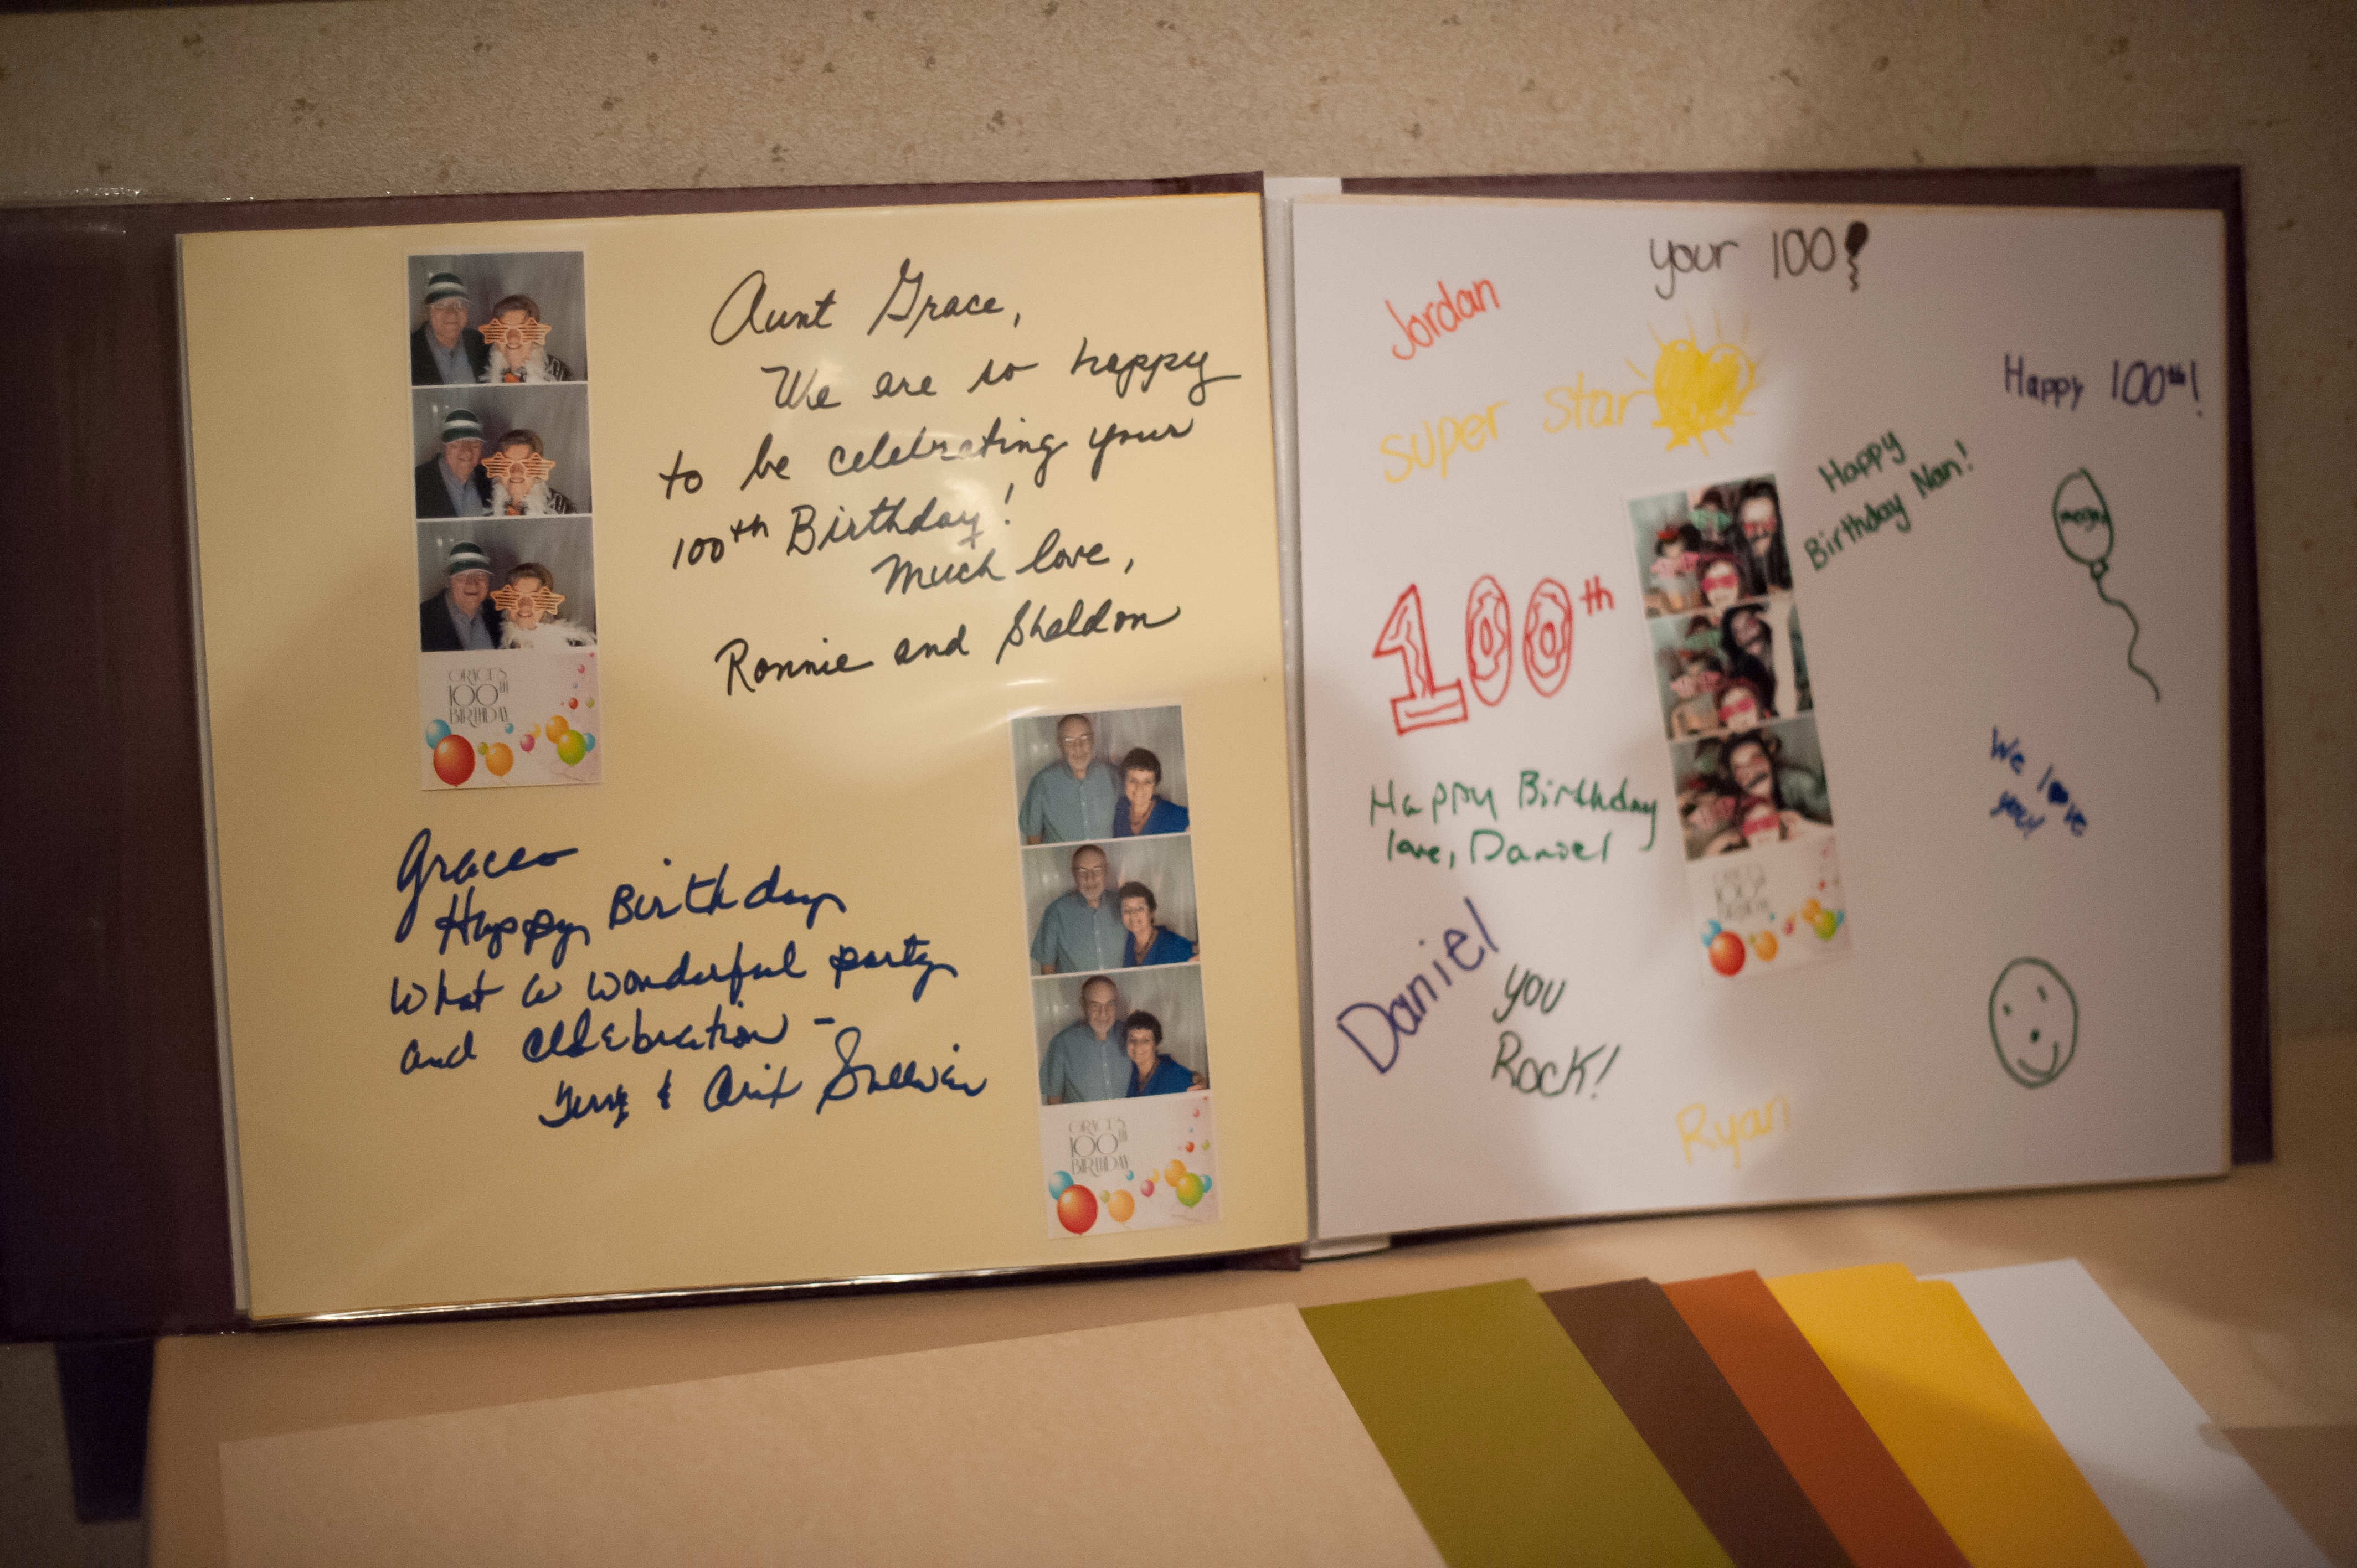 Aunt Grace,
We are so happy
to be celebrating your
100th Birthday!
Much love,
Ronnie and Sheldon
GRACE'S
100TH
BIRTHDAY
Grace
Happy Birthday
What a wonderful party
and celebration -
& Sullivan
GRACE'S
100TH
BIRTHDAY
your 100!
Jordan
super star
Happy 100th!
Happy
Birthday Nan!
100th
Happy Birthday
love, Daniel
We love
you!
Daniel
you
Rock!
Ryan
GRACE'S
100TH
BIRTHDAY